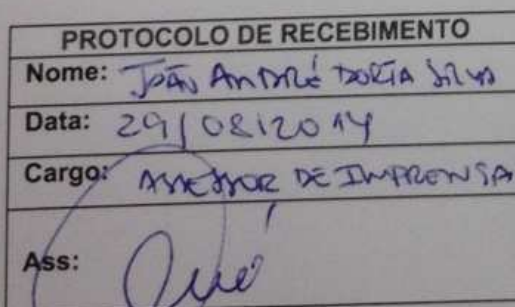 PROTOCOLO DE RECEBIMENTO
Nome: JOÃO ANDRÉ DORIA SILVA
Data: 29/08/2014
Cargo: ASSESSOR DE IMPRENSA
Ass: